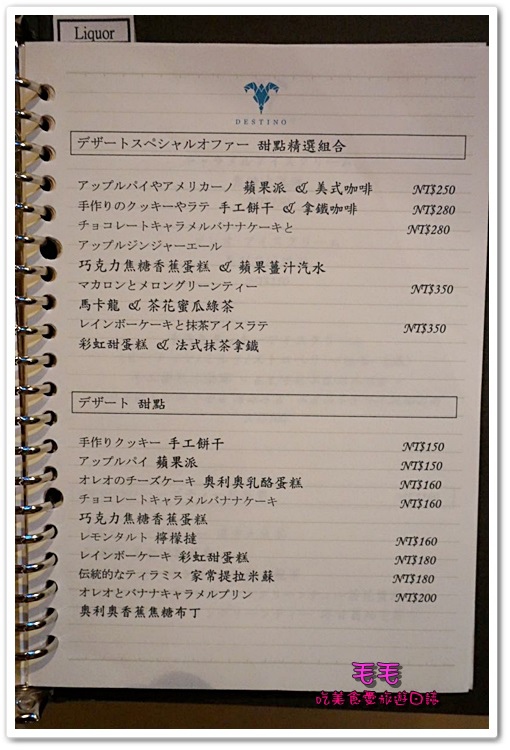 Liquor
DESTINO
デザートスペシャルオファー 甜點精選組合
アップルパイやアメリカーノ 蘋果派 & 美式咖啡 NT$250
手作りのクッキーやラテ 手工餅干 & 拿鐵咖啡 NT$280
チョコレートキャラメルバナナケーキと NT$280
アップルジンジャーエール
巧克力焦糖香蕉蛋糕 & 蘋果薑汁汽水
マカロンとメロングリーンティー NT$350
馬卡龍 & 茶花蜜瓜綠茶
レインボーケーキと抹茶アイスラテ NT$350
彩虹甜蛋糕 & 法式抹茶拿鐵
デザート 甜點
手作りクッキー 手工餅干 NT$150
アップルパイ 蘋果派 NT$150
オレオのチーズケーキ 奧利奧乳酪蛋糕 NT$160
チョコレートキャラメルバナナケーキ NT$160
巧克力焦糖香蕉蛋糕
レモンタルト 檸檬撻 NT$160
レインボーケーキ 彩虹甜蛋糕 NT$180
伝統的なティラミス 家常提拉米蘇 NT$180
オレオとバナナキャラメルプリン NT$200
奧利奧香蕉焦糖布丁
毛毛
吃美食愛旅遊日誌